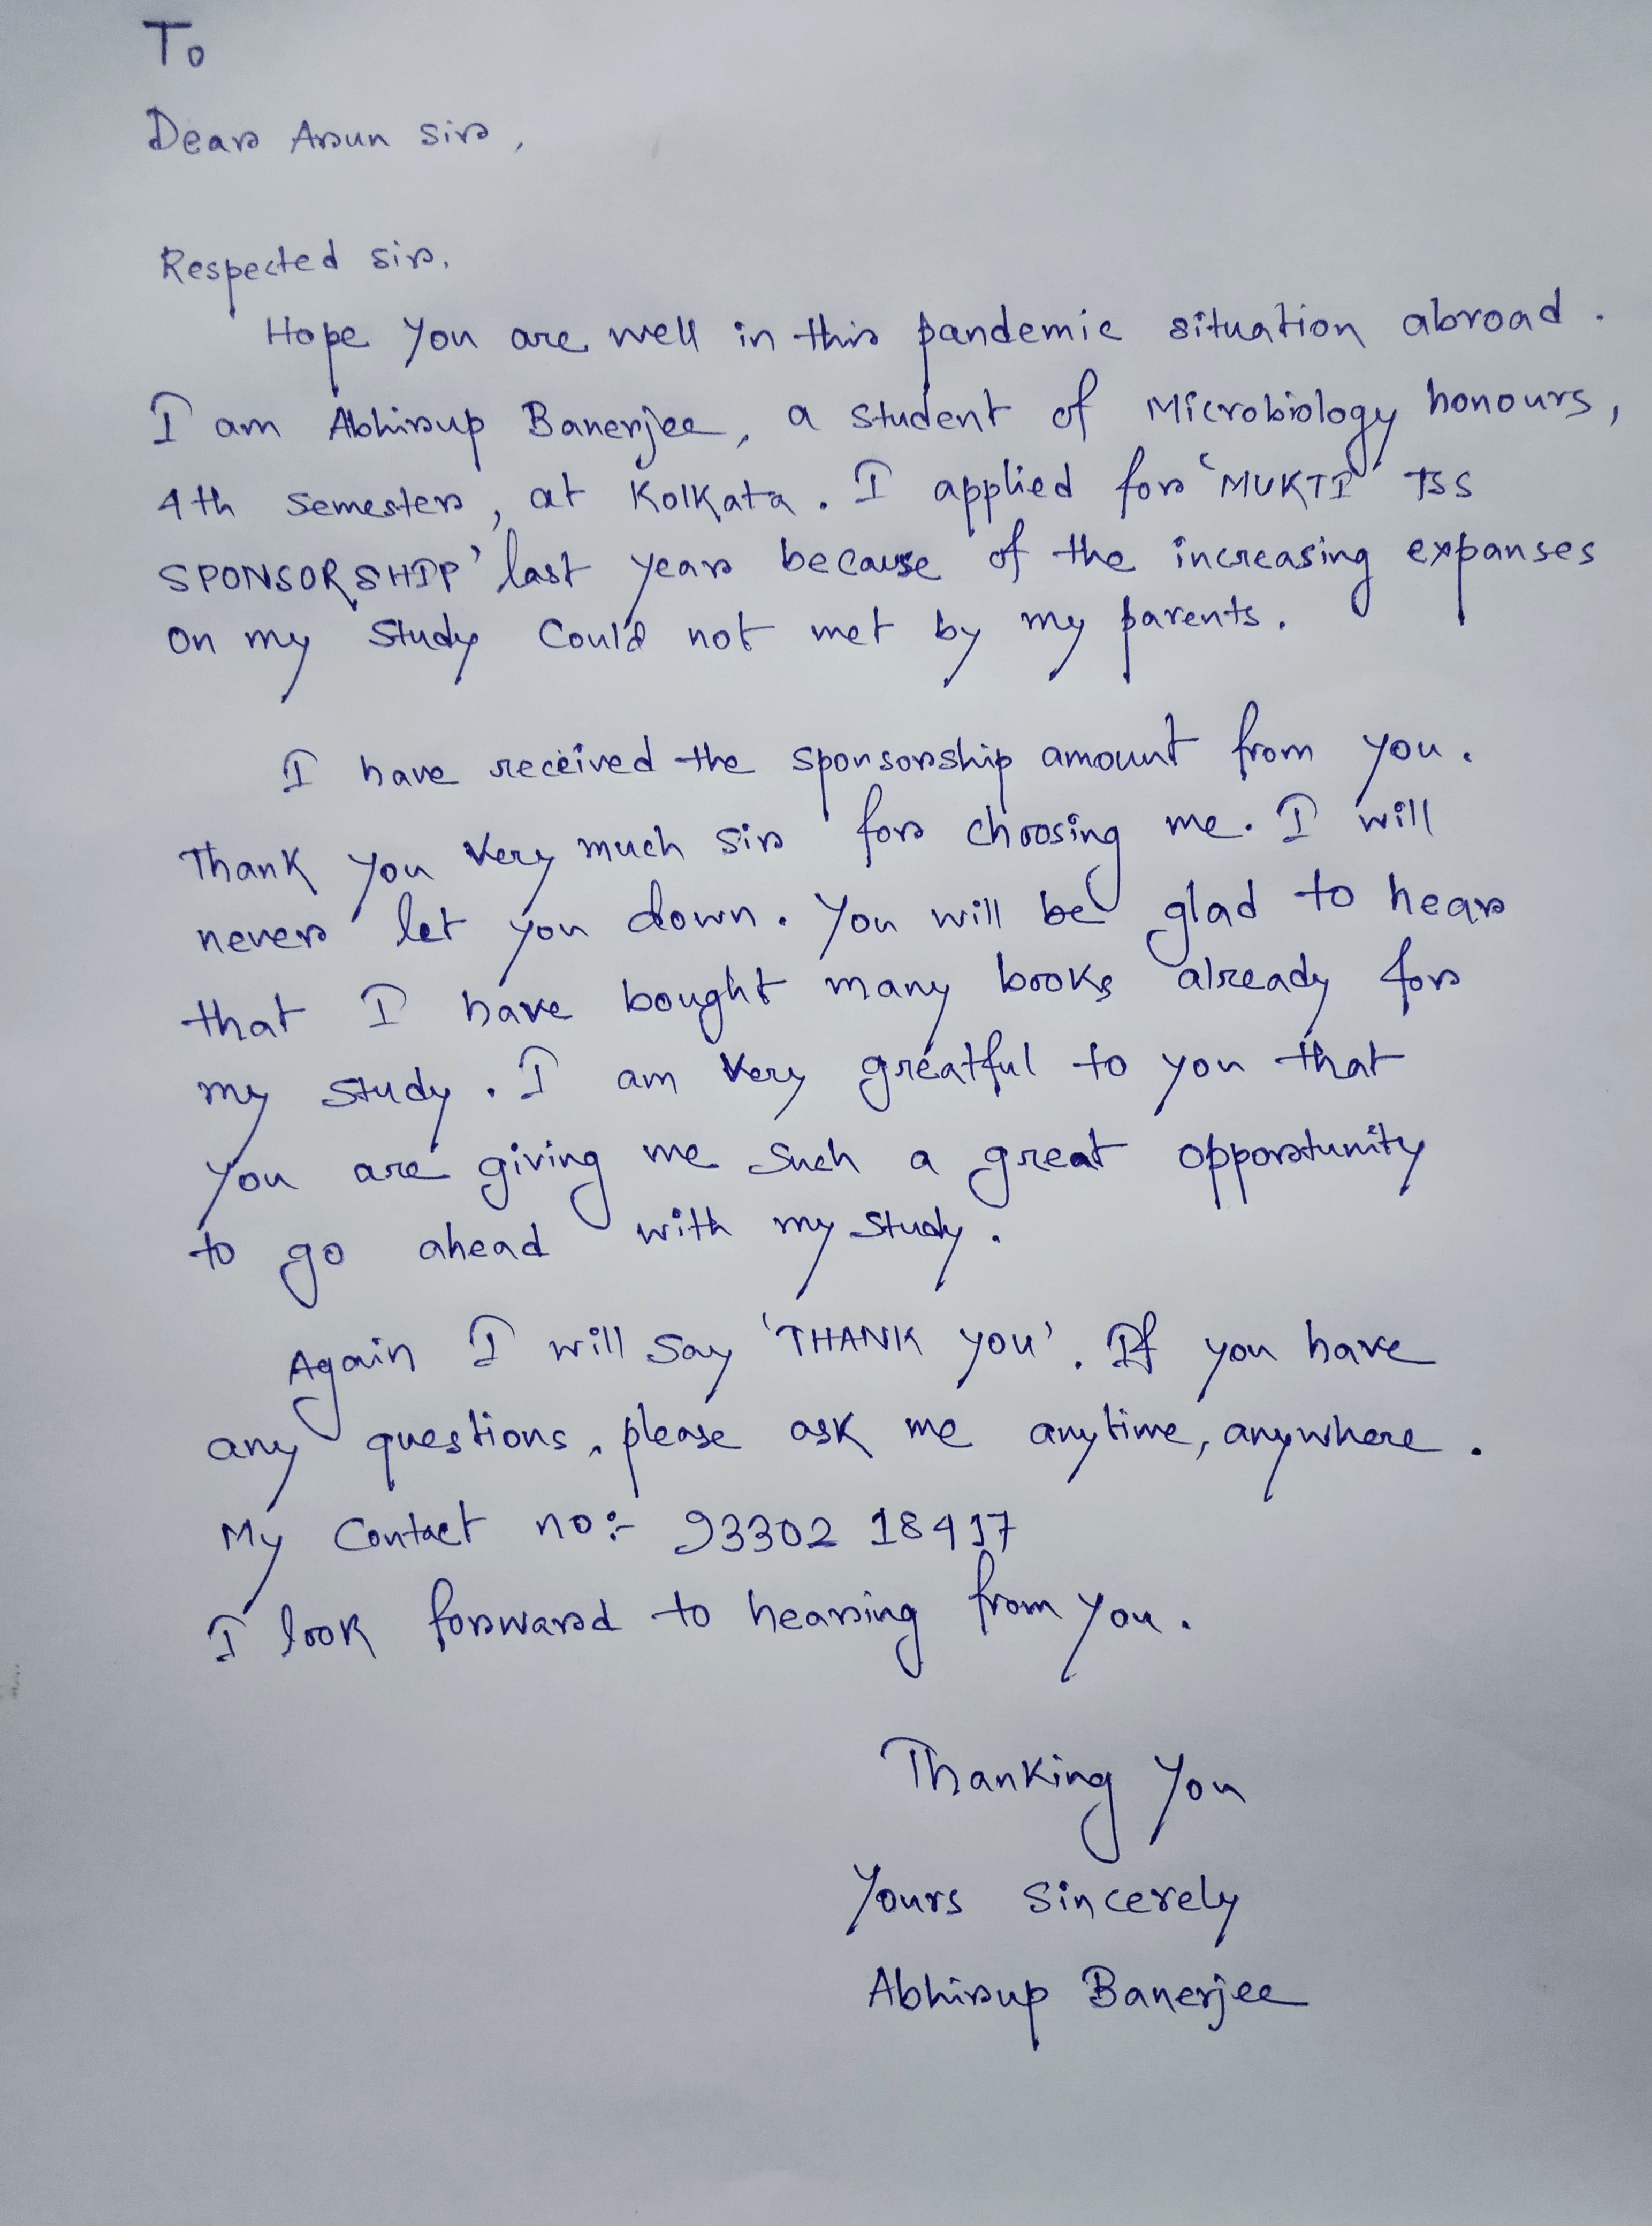 To
Dear Arun sir,
Respected sir,
Hope you are well in this pandemic situation abroad.
I am Abhirup Banerjee, a student of Microbiology honours,
4th semester, at Kolkata. I applied for 'MUKTI' TSS
SPONSORSHIP' last year because of the increasing expanses
on my study could not met by my parents.
I have received the sponsorship amount from you.
Thank you very much sir for choosing me. I will
never let you down. You will be glad to hear
that I have bought many books already for
my study. I am very greatful to you that
you are giving me such a great opportunity
to go ahead with my study.
Again I will say 'THANK YOU'. If you have
any questions, please ask me anytime, anywhere.
My Contact no:- 93302 18417
I look forward to hearing from you.
Thanking You
Yours Sincerely
Abhirup Banerjee